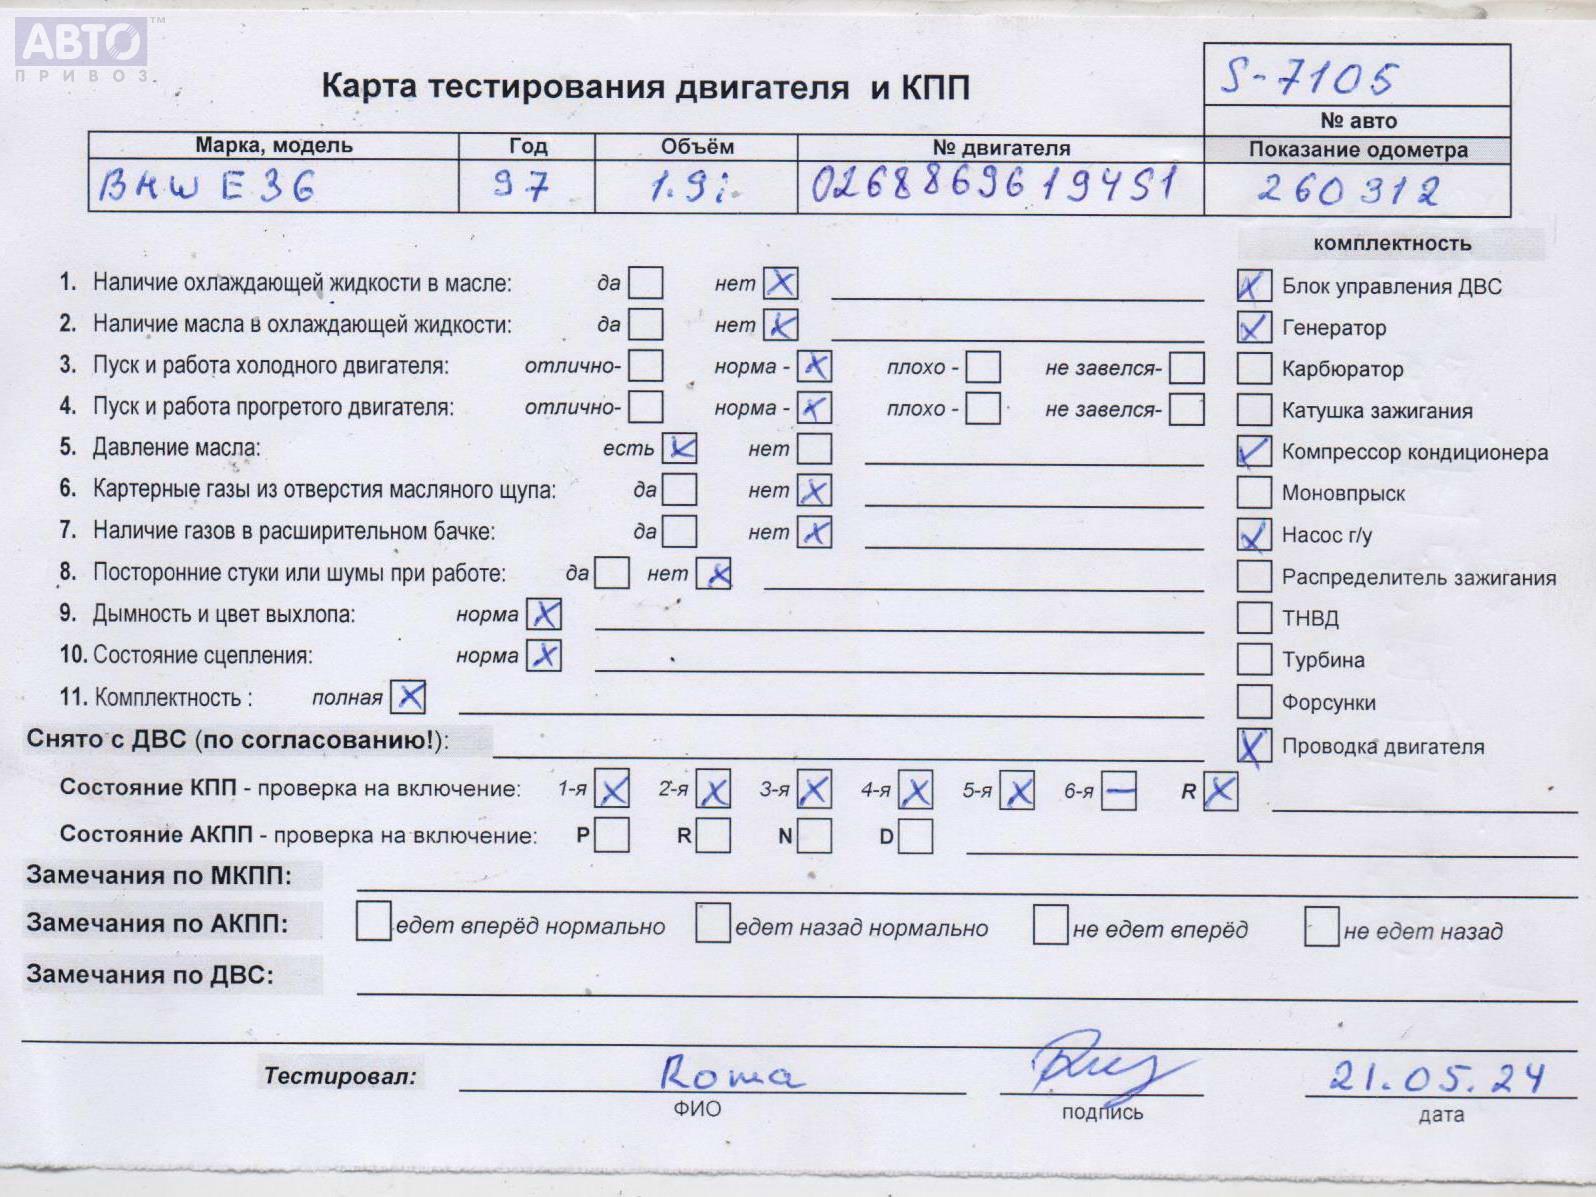 АВТО™
ПРИВОЗ
Карта тестирования двигателя и КПП
S-7105
№ авто
Марка, модель Год Объём № двигателя Показание одометра
BMW E36 97 1.9i 02688696194S1 260312
комплектность
1. Наличие охлаждающей жидкости в масле: да нет X
X Блок управления ДВС
2. Наличие масла в охлаждающей жидкости: да нет X
X Генератор
3. Пуск и работа холодного двигателя: отлично- норма - X плохо - не завелся-
Карбюратор
4. Пуск и работа прогретого двигателя: отлично- норма - X плохо - не завелся-
Катушка зажигания
5. Давление масла: есть X нет
X Компрессор кондиционера
6. Картерные газы из отверстия масляного щупа: да нет X
Моновпрыск
7. Наличие газов в расширительном бачке: да нет X
X Насос г/у
8. Посторонние стуки или шумы при работе: да нет X
Распределитель зажигания
9. Дымность и цвет выхлопа: норма X
ТНВД
10. Состояние сцепления: норма X
Турбина
11. Комплектность : полная X
Форсунки
Снято с ДВС (по согласованию!):
X Проводка двигателя
Состояние КПП - проверка на включение: 1-я X 2-я X 3-я X 4-я X 5-я X 6-я — R X
Состояние АКПП - проверка на включение: P R N D
Замечания по МКПП:
Замечания по АКПП: едет вперёд нормально едет назад нормально не едет вперёд не едет назад
Замечания по ДВС:
Тестировал: Roma 21.05.24
ФИО подпись дата